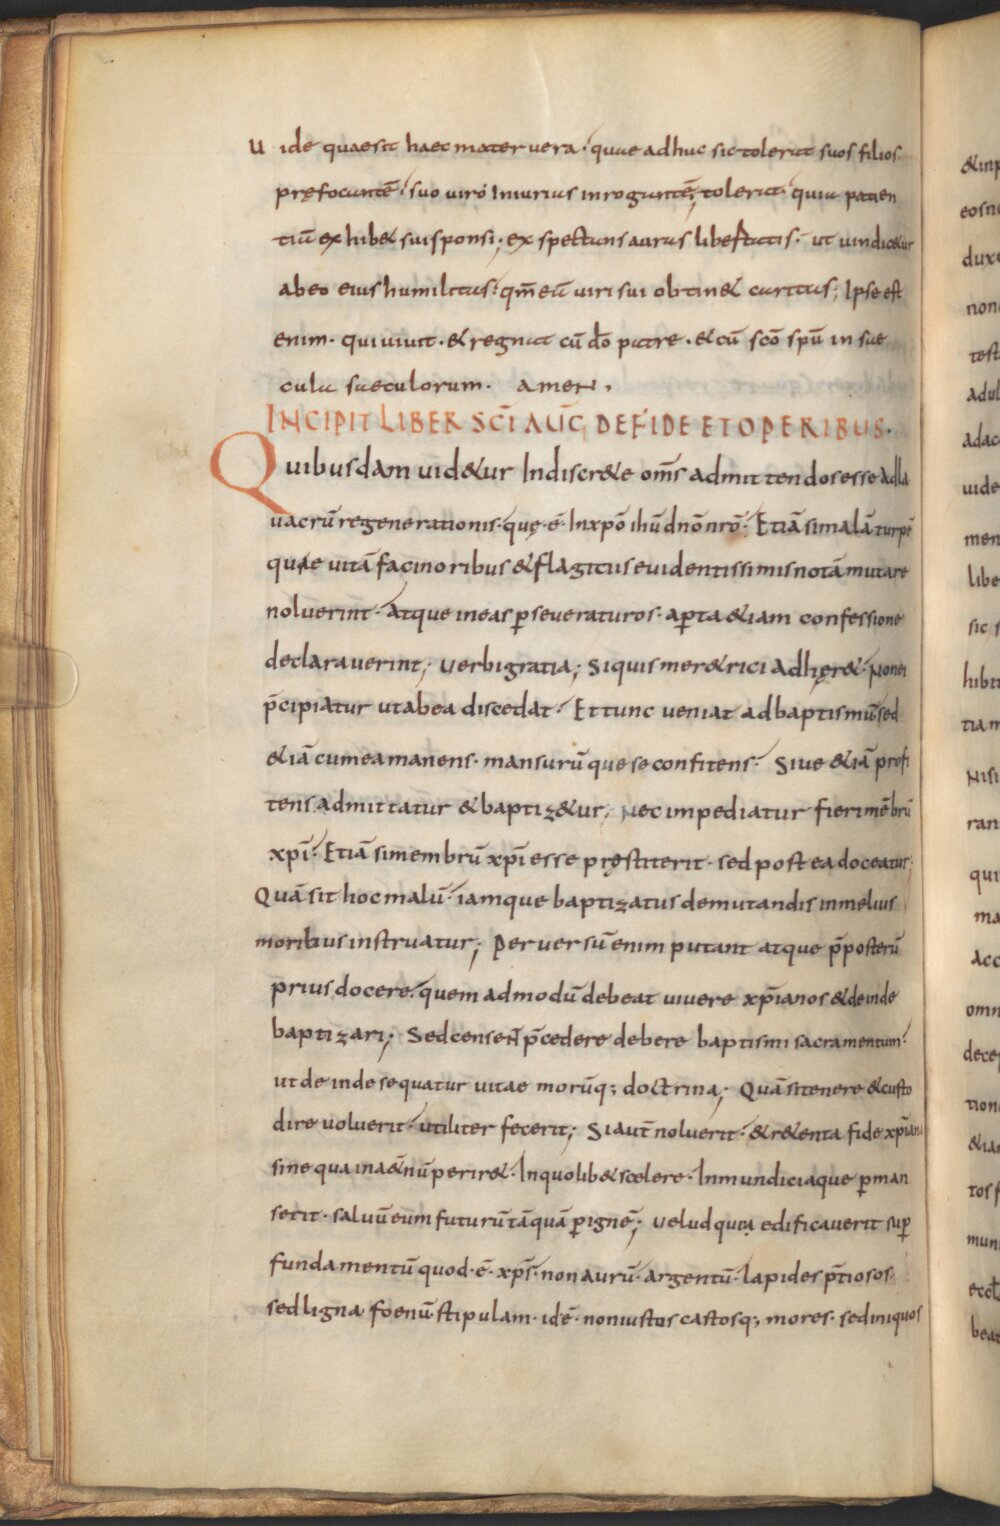 U ide quaesit haec mater uera · quae adhuc sic tolerat suos filios
pręfocantē · suo uiró Iniurias inrogantē; tolerat · quia patien
tiū exhib& sui sponsi; expectans auras libertatis · ut uindic&ur
ab eo eius humilitas · qm̄ eū uiri sui obtin& caritas; Ipse est
enim · qui uiuit · & regnat cū do̅ patre · & cū sc̅o sp̅u in sae
cula saeculorum · amen ,
INCIPIT LIBER SC̅I AUG̅ DE FIDE ET OPERIBUS ·
Quibusdam uid&ur Indiscr&e om̄s admittendos esse ad la
uacrū regenerationis · quę · ē · In xp̄o ih̄u dn̄o nr̄o · Etiā si malā turpē
quae uitā facinoribus & flagitiis euidentissimis notā mutare
noluerint · Atque in eas p̱seueraturos · ap̱ta &iam confessione
declarauerint; uerbi gratia; Si quis mer&rici adhęr& · Non ei
p̄cipiatur ut ab ea discedat · Et tunc ueniat ad baptismū sed
&iā cum ea manens · mansurū que se confitens · Siue &iā profi
tens admittatur & baptiz&ur; Nec impediatur fieri mēbrū
xp̄i · Etiā si membrū xp̄i esse pręstiterit · sed post ea doceatur ·
Quā sit hoc malū · iamque baptizatus de mutandis in melius
moribus instruatur; Peruersū enim putant atque p̄posterū
prius docere · quem admodū debeat uiuere xp̄ianos & deinde
baptizari; Sed censent p̄cedere debere baptismi sacramentum
ut deinde sequatur uitae morūq; doctrina; Quā si tenere & custo
dire uoluerit · utiliter fecerit; Si aut̄ noluerit · & r&enta fide xp̄iana
sine qua in a&̄nū perir& · In quolib& scelere · Inmundiciaque p̱man
serit · saluū eum futurū tāquā p̱ ignē; uelud qui a edificauerit sup̱
fundamentū quod · ē · xp̄s · non aurū · argentū · lapides p̄tiosos ·
sed ligna foenū stipulam · id ē · non iustos castosq; mores · sed iniquos